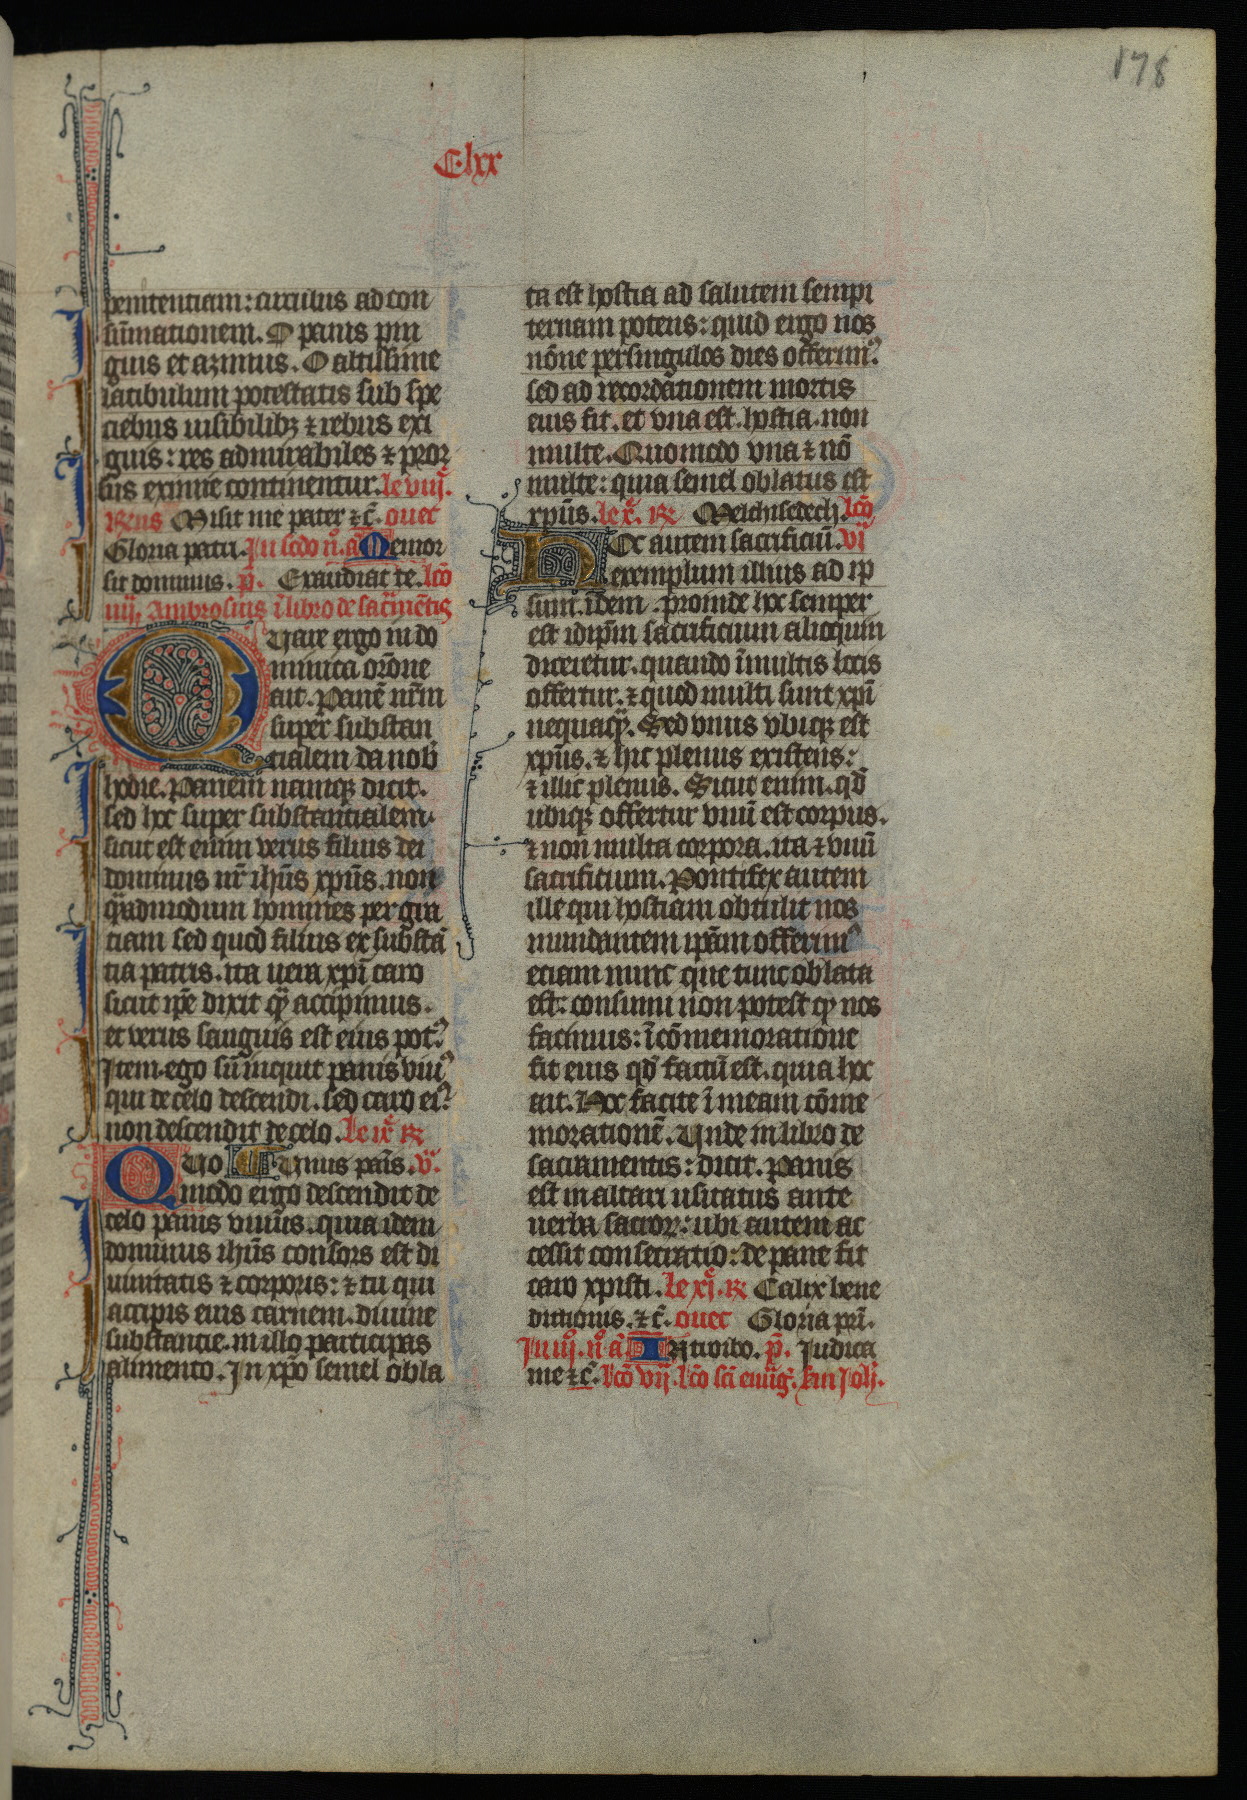 178
C·lxx
penitentiam: circulus ad con
sũmationem. O panis pin
guis et azimus. O altissime
latibulum potestatis sub spe
ciebus uisibilibꝫ ⁊ rebus exi
guis: res admirabiles ⁊ pror
sus eximie continentur. le viijͣ.
Misit me pater ⁊c̃. ouet
Gloria patri. In scdo nͦ. añ Memor
sit dominus. p̃. Exaudiat te. lcõ
iiij. Ambrosius ĩ libro de sacͣmẽtis
Uare ergo in do
minica orõne
ait. Panẽ nr̃m
super substan
tialem da nob̃
hodie. Panem namqꝫ dicit.
sed hoc super substantialem.
sicut est enim verus filius dei
dominus nr̃ ihũs xpũs. non
q̃admodum homines per gra
tiam sed quod filius ex substã
tia patris. ita uera xpĩ caro
sicut ip̃e dixit qͣ accipimus.
et verus sanguis est eius potꝰ.
Item. ego sũ inquit panis viuꝰ
qui de celo descendi. sed caro eiꝰ.
non descendit de celo. le ixͣ ℟
Uo T Unus panis. vͣ.
modo ergo descendit de
celo panis viuus. quia idem
dominus ihũs consors est di
uinitatis ⁊ corporis: ⁊ tu qui
accipis eius carnem. diuine
substantie. in illo participas
alimento. In xp̃o semel obla
ta est hostia ad salutem sempi
ternam potens: quid ergo nos
nõne per singulos dies offerimꝰ.
sed ad recordationem mortis
eius fit. et vna est. hostia. non
multe. Quomodo vna ⁊ nõ
multe: quia semel oblatus est
xpũs. le x̃. ℟ Melchisedech. lcõ
Oc autem sacrificiũ. vͣ
exemplum illius ad ip
sum. idem. proinde hoc semper
est idip̃m sacrificium alioquin
diceretur. quando ĩ multis locis
offertur. ⁊ quod multi sunt xpĩ
nequaqͣ. Sed vnus vbiqꝫ est
xpũs. ⁊ hic plenus existens:
⁊ illic plenus. Sicut enim. qd̃
ubiqꝫ offertur vnũ est corpus.
⁊ non multa corpora. ita ⁊ vnũ
sacrificium. Pontifex autem
ille qui hostiam obtulit nos
mundantem ip̃am offerimꝰ
etiam nunc que tunc oblata
est: consumi non potest qͣ nos
facimus: ĩ cõmemoratione
fit eius qd̃ factũ est. quia hoc
ait. Hoc facite ĩ meam cõme
morationẽ. Unde in libro de
sacramentis: dicit. Panis
est in altari usitatus ante
uerba sacroꝝ: ubi autem ac
cessit consecratio: de pane fit
caro xpisti. le xjͣ. ℟ Calix bene
dictionis. ⁊c̃. ouet Gloria pr̃i.
In iijͦ. nͦ. añ Introibo. p̃. Iudica
me ⁊c̃. lcõ vijͣ. lcõ scĩ euuãg̃. scd̃m Ioħ.